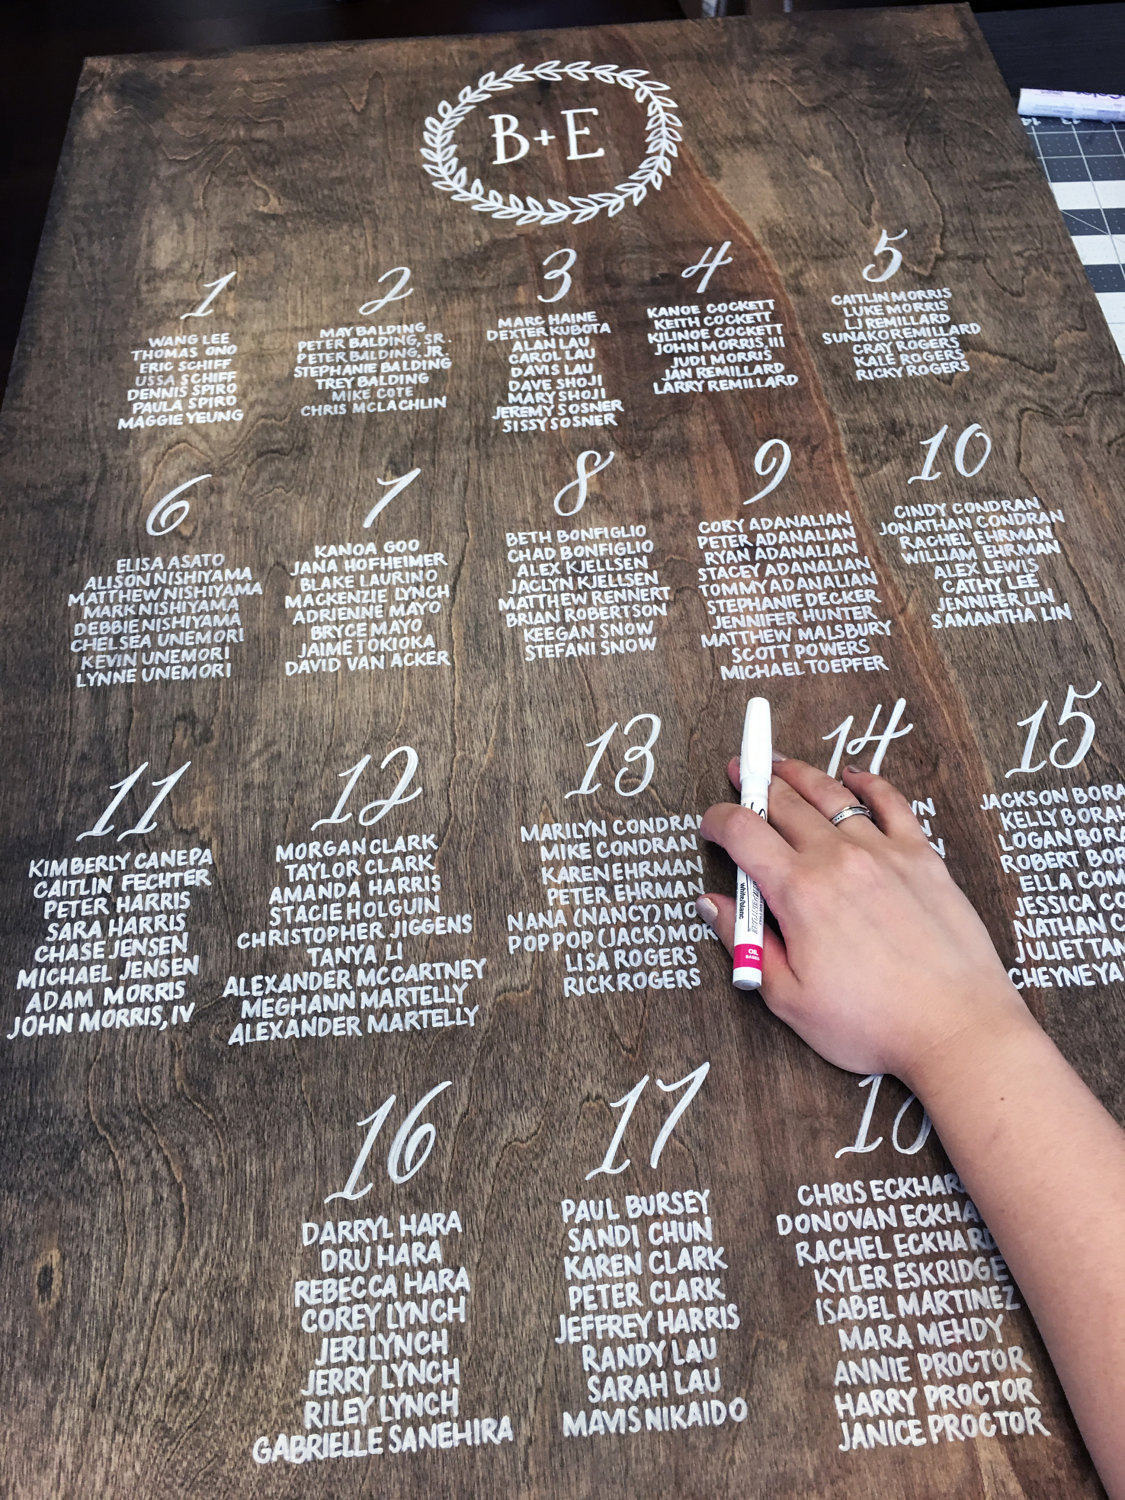 B+E
1
WANG LEE
THOMAS ONO
ERIC SCHIFF
USSA SCHIFF
DENNIS SPIRO
PAULA SPIRO
MAGGIE YEUNG
2
MAY BALDING
PETER BALDING, SR.
PETER BALDING, JR.
STEPHANIE BALDING
TREY BALDING
MIKE COTE
CHRIS MCLACHLIN
3
MARC HAINE
DEXTER KUBOTA
ALAN LAU
CAROL LAU
DAVIS LAU
DAVE SHOJI
MARY SHOJI
JEREMY SOSNER
SISSY SOSNER
4
KANOE COCKETT
KEITH COCKETT
KILINOE COCKETT
JOHN MORRIS, III
JUDI MORRIS
JAN REMILLARD
LARRY REMILLARD
5
CAITLIN MORRIS
LUKE MORRIS
LJ REMILLARD
SUNAKO REMILLARD
CRAY ROGERS
KALE ROGERS
RICKY ROGERS
6
ELISA ASATO
ALISON NISHIYAMA
MATTHEW NISHIYAMA
MARK NISHIYAMA
DEBBIE NISHIYAMA
CHELSEA UNEMORI
KEVIN UNEMORI
LYNNE UNEMORI
7
KANOA GOO
JANA HOFHEIMER
BLAKE LAURINO
MACKENZIE LYNCH
ADRIENNE MAYO
BRYCE MAYO
JAIME TOKIOKA
DAVID VAN ACKER
8
BETH BONFIGLIO
CHAD BONFIGLIO
ALEX KJELLSEN
JACLYN KJELLSEN
MATTHEW RENNERT
BRIAN ROBERTSON
KEEGAN SNOW
STEFANI SNOW
9
CORY ADANALIAN
PETER ADANALIAN
RYAN ADANALIAN
STACEY ADANALIAN
TOMMY ADANALIAN
STEPHANIE DECKER
JENNIFER HUNTER
MATTHEW MALSBURY
SCOTT POWERS
MICHAEL TOEPFER
10
CINDY CONDRAN
JONATHAN CONDRAN
RACHEL EHRMAN
WILLIAM EHRMAN
ALEX LEWIS
CATHY LEE
JENNIFER LIN
SAMANTHA LIN
11
KIMBERLY CANEPA
CAITLIN FECHTER
PETER HARRIS
SARA HARRIS
CHASE JENSEN
MICHAEL JENSEN
ADAM MORRIS
JOHN MORRIS, IV
12
MORGAN CLARK
TAYLOR CLARK
AMANDA HARRIS
STACIE HOLGUIN
CHRISTOPHER JIGGENS
TANYA LI
ALEXANDER MCCARTNEY
MEGHANN MARTELLY
ALEXANDER MARTELLY
13
MARILYN CONDRAN
MIKE CONDRAN
KAREN EHRMAN
PETER EHRMAN
NANA (NANCY)
POP POP (JACK)
LISA ROGERS
RICK ROGERS
14
15
JACKSON
KELLY
LOGAN
ROBERT
ELLA
JESSICA
NATHAN
JULIET
CHEYNE
16
DARRYL HARA
DRU HARA
REBECCA HARA
COREY LYNCH
JERI LYNCH
JERRY LYNCH
RILEY LYNCH
GABRIELLE SANEHIRA
17
PAUL BURSEY
SANDI CHUN
KAREN CLARK
PETER CLARK
JEFFREY HARRIS
RANDY LAU
SARAH LAU
MAVIS NIKAIDO
CHRIS
DONOVAN
RACHEL ECKHARD
KYLER ESKRIDGE
ISABEL MARTINEZ
MARA MEHDY
ANNIE PROCTOR
HARRY PROCTOR
JANICE PROCTOR
OIL
BASED